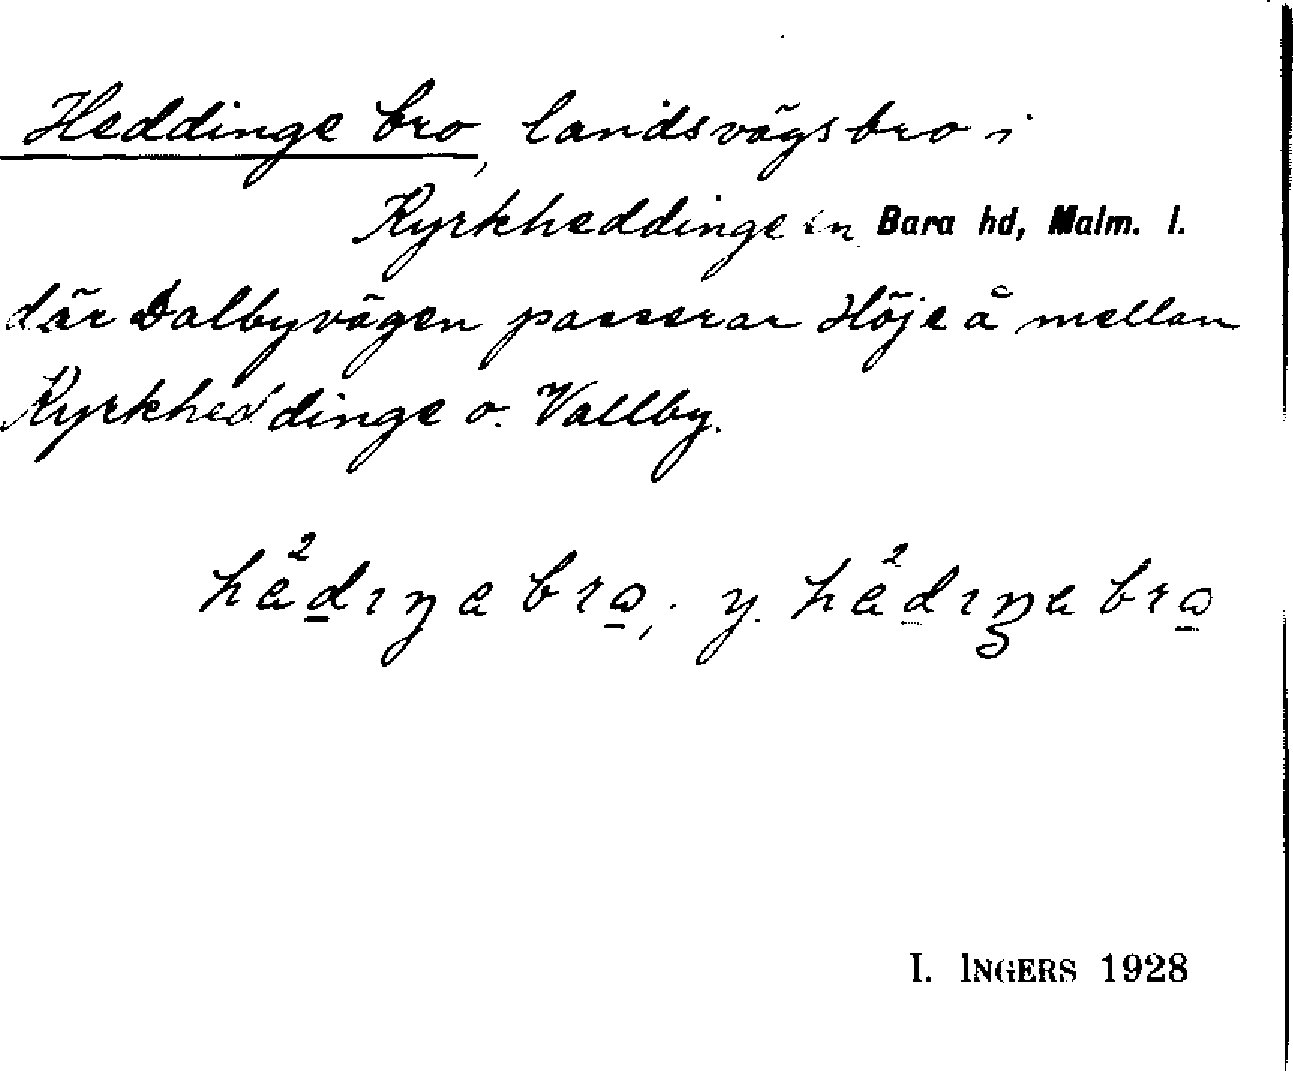 Heddinge bro, landsvägsbro i
Kyrkheddinge sn Bara hd, Malm. l.
där Dalbyvägen passerar Höje å mellan
Kyrkheddinge o. Vallby.
hä²dıŋa bro, y. hä²dıŋa bro
I. INGERS 1928